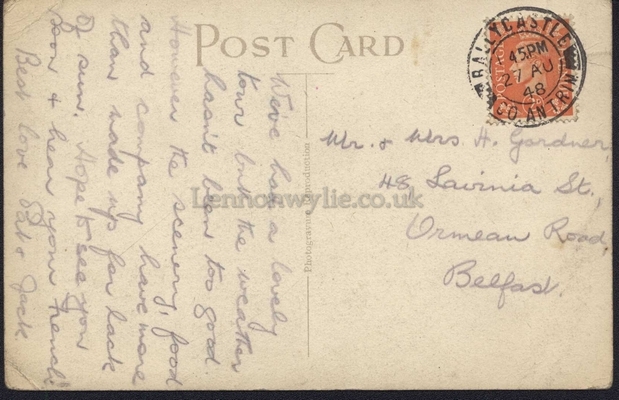 POST CARD
BALLYCASTLE
4.5PM
27 AU
48
CO. ANTRIM
POSTAGE
We've had a lovely
tour but the weather
hasn't been too good.
However the scenery, food
and company have more
than made up for lack
of sun. Hope to see you
soon & hear your French
Best love & Jack
Mr. & Mrs. H. Gardner,
48, Lavinia St.,
Ormeau Road,
Belfast.
Photogravure Reproduction
Lennonwylie.co.uk